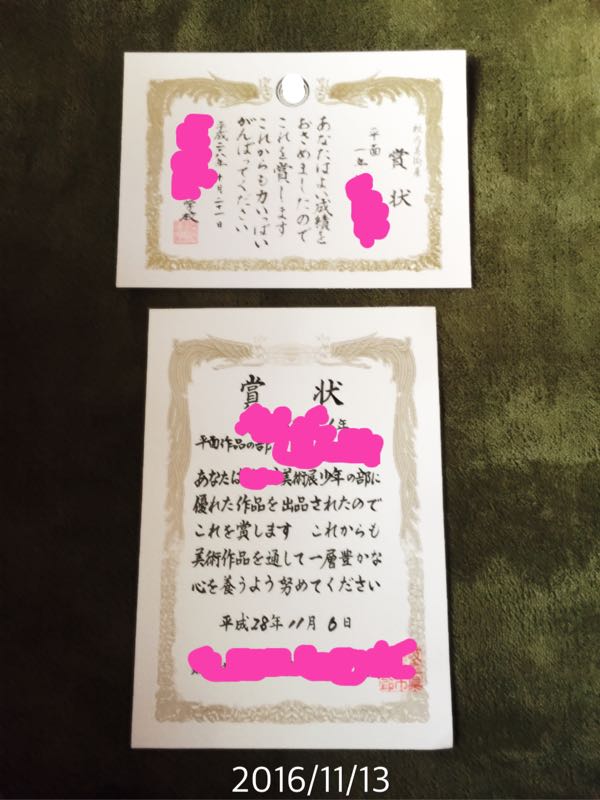 校内美術展
賞状
平面
一年
あなたはよい成績を
おさめましたので
これを賞します
これからも力いっぱい
がんばってください
平成二八年十月二十一日
学校
賞 状
年
平面作品の部
あなたは 美術展少年の部に
優れた作品を出品されたので
これを賞します これからも
美術作品を通して一層豊かな
心を養うよう努めてください
平成28年11月6日
2016/11/13